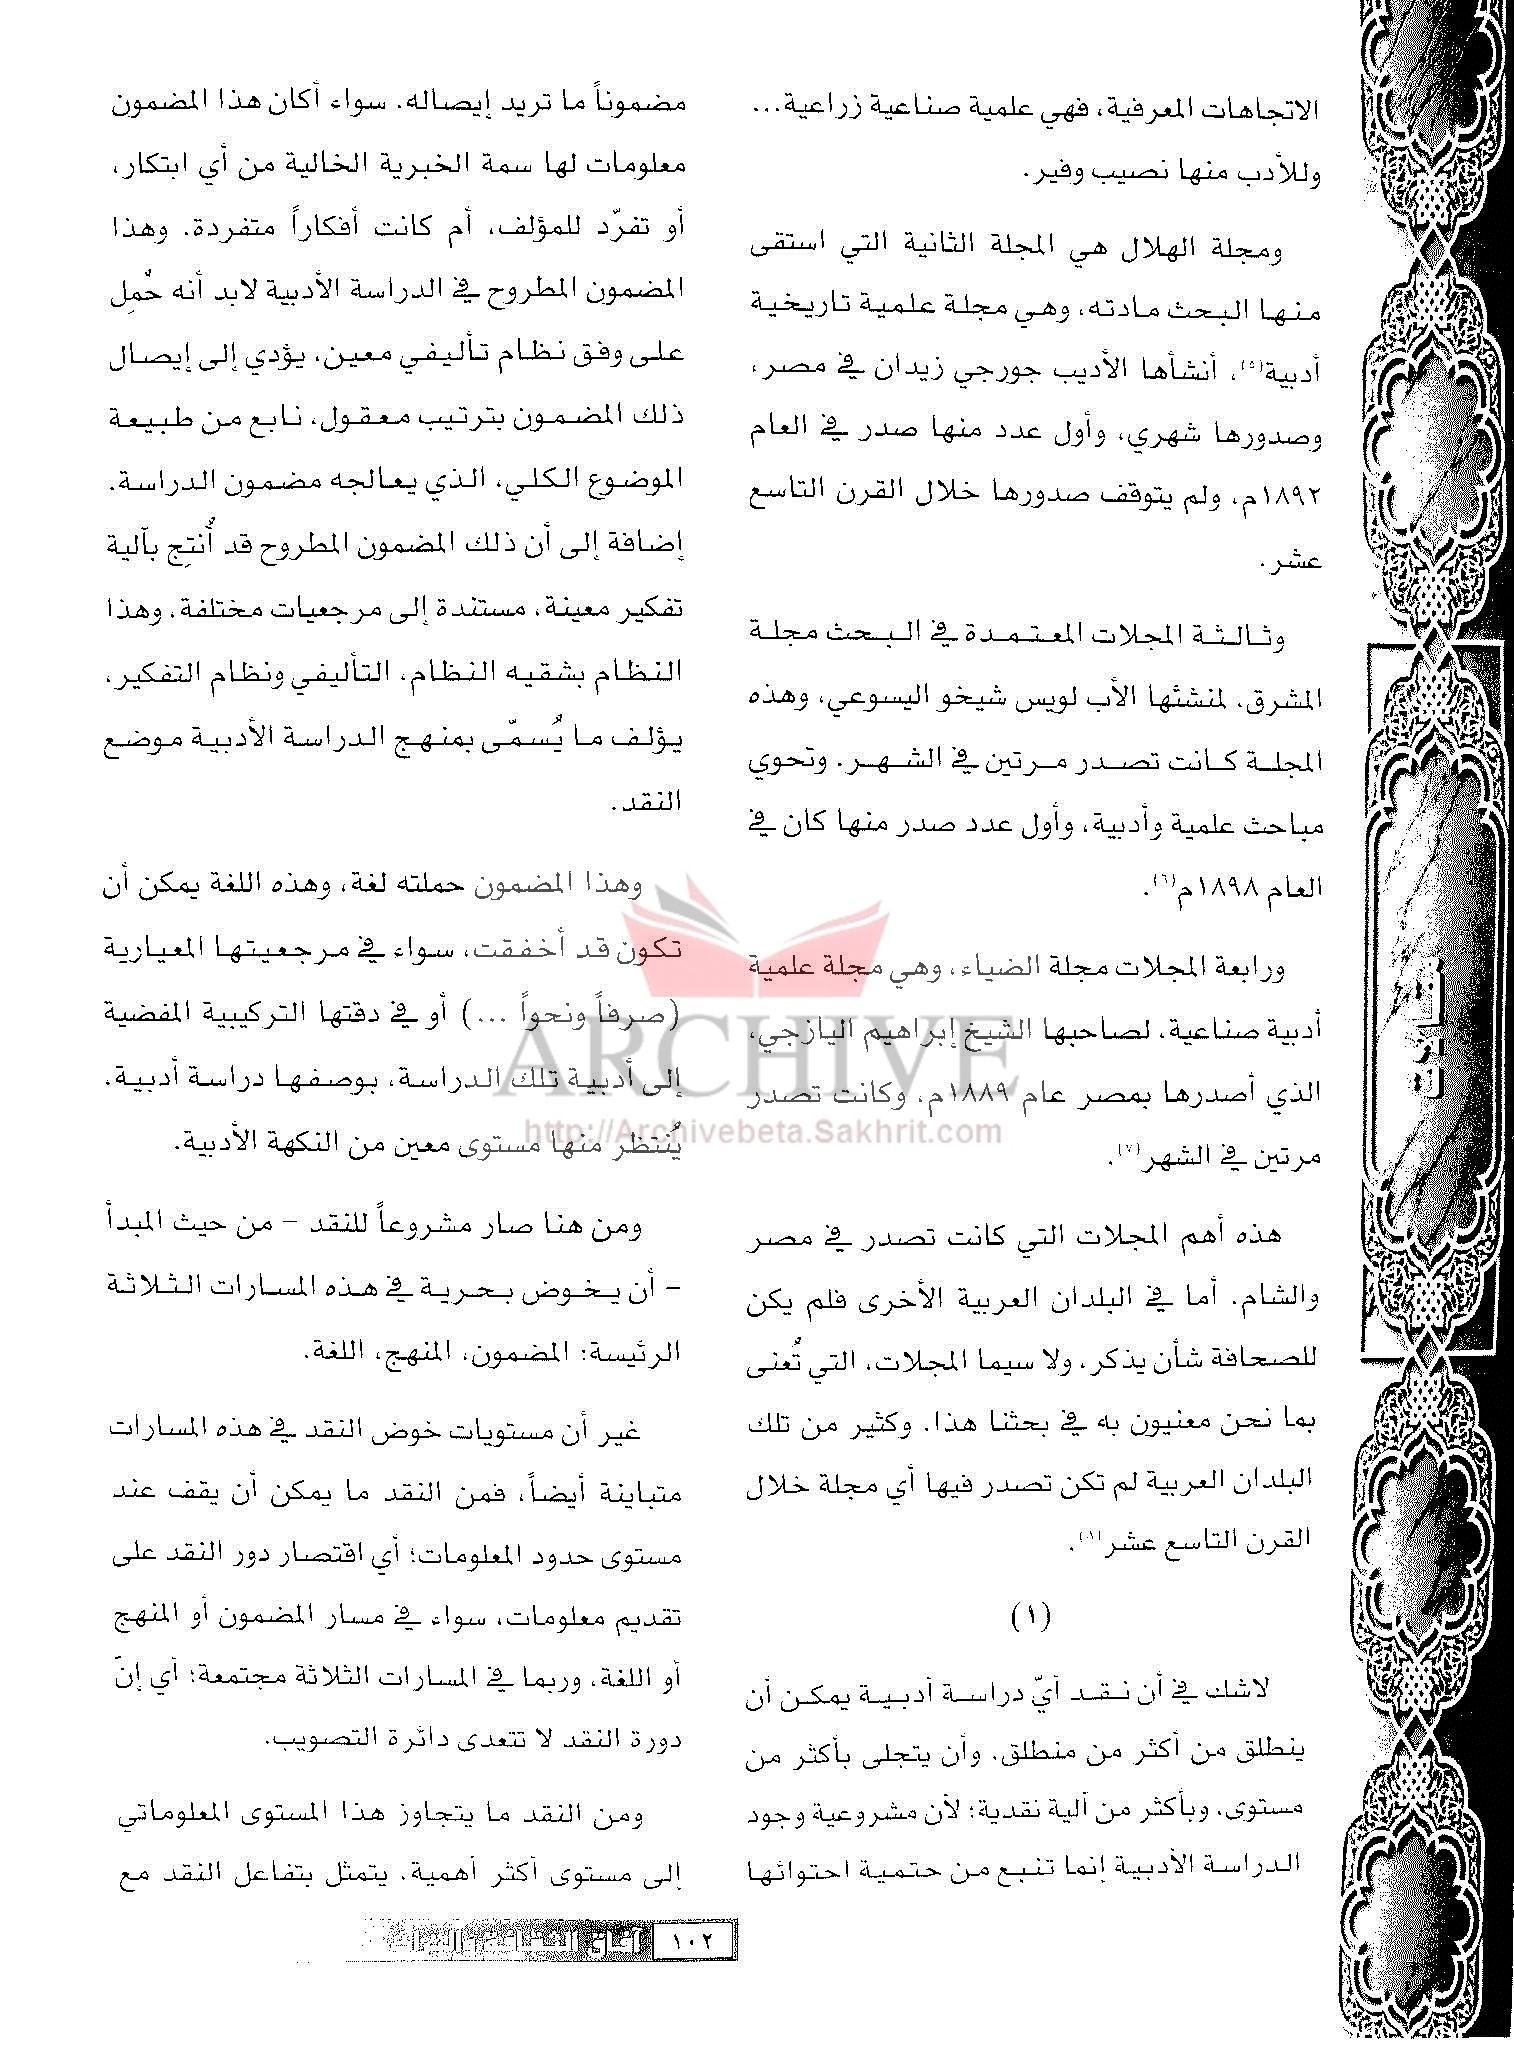 الاتجاهات المعرفية، فهي علمية صناعية زراعية...
وللأدب منها نصيب وفير.
ومجلة الهلال هي المجلة الثانية التي استقى
منها البحث مادته، وهي مجلة علمية تاريخية
أدبية(٥)، أنشأها الأديب جورجي زيدان في مصر،
وصدورها شهري، وأول عدد منها صدر في العام
١٨٩٢م، ولم يتوقف صدورها خلال القرن التاسع
عشر.
وثالثة المجلات المعتمدة في البحث مجلة
المشرق، لمنشئها الأب لويس شيخو اليسوعي، وهذه
المجلة كانت تصدر مرتين في الشهر. وتحوي
مباحث علمية وأدبية، وأول عدد صدر منها كان في
العام ١٨٩٨م(٦).
ورابعة المجلات مجلة الضياء، وهي مجلة علمية
أدبية صناعية، لصاحبها الشيخ إبراهيم اليازجي،
الذي أصدرها بمصر عام ١٨٨٩م، وكانت تصدر
مرتين في الشهر(٧).
هذه أهم المجلات التي كانت تصدر في مصر
والشام. أما في البلدان العربية الأخرى فلم يكن
للصحافة شأن يذكر، ولا سيما المجلات، التي تُعنى
بما نحن معنيون به في بحثنا هذا. وكثير من تلك
البلدان العربية لم تكن تصدر فيها أي مجلة خلال
القرن التاسع عشر(٨).
(١)
لاشك في أن نقد أيّ دراسة أدبية يمكن أن
ينطلق من أكثر من منطلق. وأن يتجلى بأكثر من
مستوى، وبأكثر من آلية نقدية؛ لأن مشروعية وجود
الدراسة الأدبية إنما تنبع من حتمية احتوائها
مضموناً ما تريد إيصاله. سواء أكان هذا المضمون
معلومات لها سمة الخبرية الخالية من أي ابتكار،
أو تفرّد للمؤلف، أم كانت أفكاراً متفردة. وهذا
المضمون المطروح في الدراسة الأدبية لابد أنه حُمِل
على وفق نظام تأليفي معين، يؤدي إلى إيصال
ذلك المضمون بترتيب معقول، نابع من طبيعة
الموضوع الكلي، الذي يعالجه مضمون الدراسة.
إضافة إلى أن ذلك المضمون المطروح قد أُنتِج بآلية
تفكير معينة، مستندة إلى مرجعيات مختلفة، وهذا
النظام بشقيه النظام، التأليفي ونظام التفكير،
يؤلف ما يُسمّى بمنهج الدراسة الأدبية موضع
النقد.
وهذا المضمون حملته لغة، وهذه اللغة يمكن أن
تكون قد أخفقت، سواء في مرجعيتها المعيارية
(صرفاً ونحواً ...) أو في دقتها التركيبية المفضية
إلى أدبية تلك الدراسة، بوصفها دراسة أدبية.
يُنتظر منها مستوى معين من النكهة الأدبية.
ومن هنا صار مشروعاً للنقد – من حيث المبدأ
– أن يخوض بحرية في هذه المسارات الثلاثة
الرئيسة: المضمون، المنهج، اللغة.
غير أن مستويات خوض النقد في هذه المسارات
متباينة أيضاً، فمن النقد ما يمكن أن يقف عند
مستوى حدود المعلومات؛ أي اقتصار دور النقد على
تقديم معلومات، سواء في مسار المضمون أو المنهج
أو اللغة، وربما في المسارات الثلاثة مجتمعة؛ أي إنّ
دورة النقد لا تتعدى دائرة التصويب.
ومن النقد ما يتجاوز هذا المستوى المعلوماتي
إلى مستوى أكثر أهمية، يتمثل بتفاعل النقد مع
مقالات
ARCHIVE
http://Archivebeta.Sakhrit.com
١٠٢ آفاق الثقافة والتراث